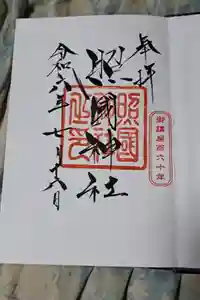 奉拝
照國神社
照國神社之印
令和六年七月十八日
御鎮座百六十年